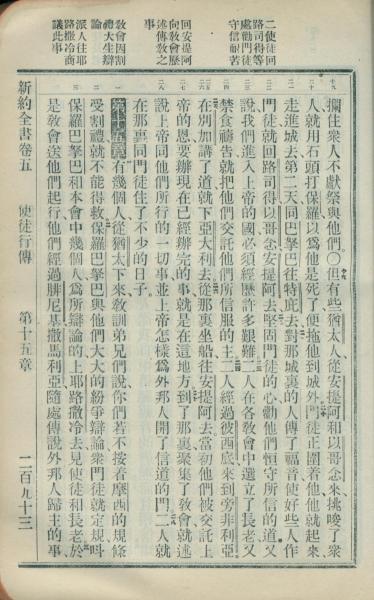 二使徒回
路司得等
處勸門徒
守信耐苦
回安提阿
向敎會歷
述傳敎之
事
敎會因割
禮大生辯
論
派人往耶
路撒冷商
議此事
攔住衆人不獻祭與他們〇但有些猶太人從安提阿和以哥念來挑唆了衆
人就用石頭打保羅以爲他是死了便拖他到城外門徒正圍着他他就起來
走進城去第二天同巴拏巴往特庇去對那城裏的人傳了福音使好些人作
門徒就回路司得以哥念安提阿去堅固門徒的心勸他們恒守所信的道又
說我們進入上帝的國必須經歷許多艱難二人在各敎會中選立了長老又
禁食禱吿就把他們交託他們所信服的主二人經過彼西底來到旁非利亞
在別加講了道就下亞大利去從那裏坐船往安提阿去當初他們被交託上
帝的恩要辦現在已經辦完的事就是在這地方到了那裏聚集了敎會就述
說上帝同他們所行的一切事並上帝怎樣爲外邦人開了信道的門二人就
在那裏同門徒住了不少的日子
第十五章有幾個人從猶太下來敎訓弟兄們說你們若不按着摩西的規條
受割禮就不能得救保羅巴拏巴與他們大大的紛爭辯論衆門徒就定規呌
保羅巴拏巴和本會中幾個人爲所辯論的上耶路撒冷去見使徒和長老於
是敎會送他們起行他們經過腓尼基撒馬利亞隨處傳說外邦人歸主的事
新約全書卷五 使徒行傳 第十五章 二百九十三